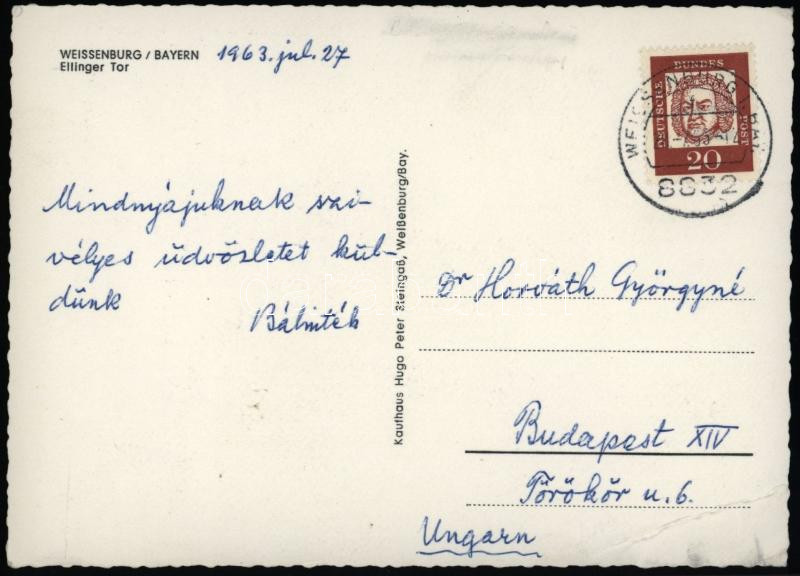 WEISSENBURG / BAYERN 1963. jul. 27
Ellinger Tor
DEUTSCHE BUNDESPOST
20
WEISSENBURG, BAY
8832
Mindnyájuknak szi-
vélyes üdvözletet kül-
dünk
Bálinték
Kaufhaus Hugo Peter Steingaß, Weißenburg/Bay.
Dr Horváth Györgyné
Budapest XIV
Törökőr u. 6.
Ungarn